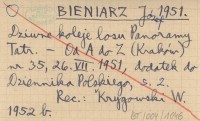 BIENIARZ Józef 1951.
Dziwne koleje losu Panoramy
Tatr. - Od A do Z (Kraków)
nr 35, 26. VII. 1951, dodatek do
Dziennika Polskiego, s. 2.
Rec.: Krygowski W.
1952 b.